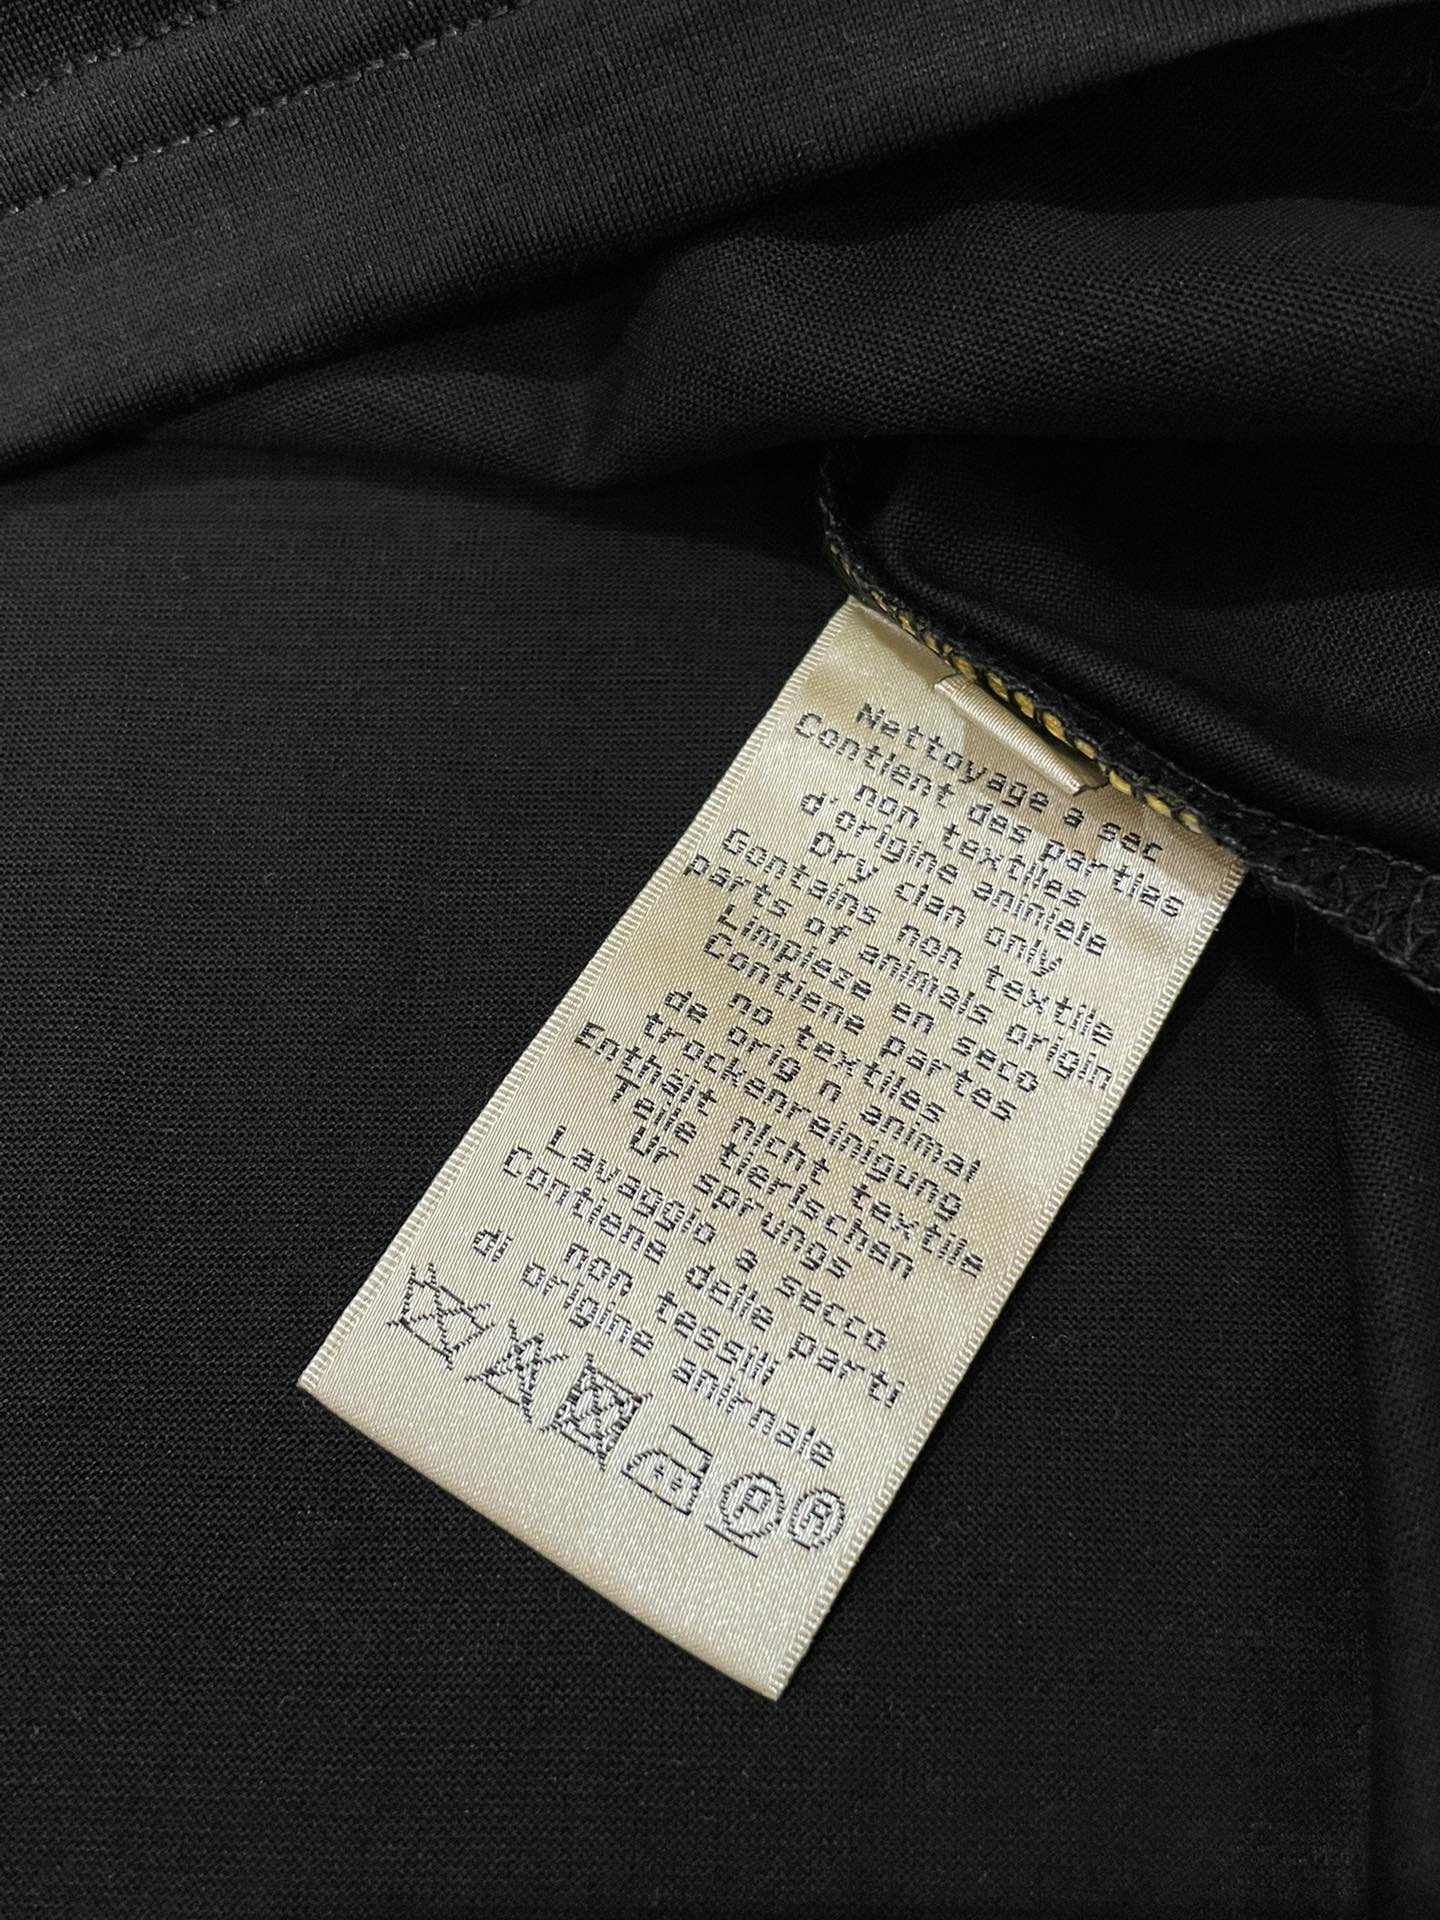 Nettoyage a sec
Contient des partias
non textiles
d'origine aniniele
Dry clan only
Gontains non textile
parts of animals origin
Limpieze en seco
Contiene partes
no textiles
de orig n animal
trockenreinigung
Enthsit nicht textile
Teile tierischen
Ur sprungs
Lavaggio a secco
Contiene delle parti
non tessili
di origine anirnale
P A